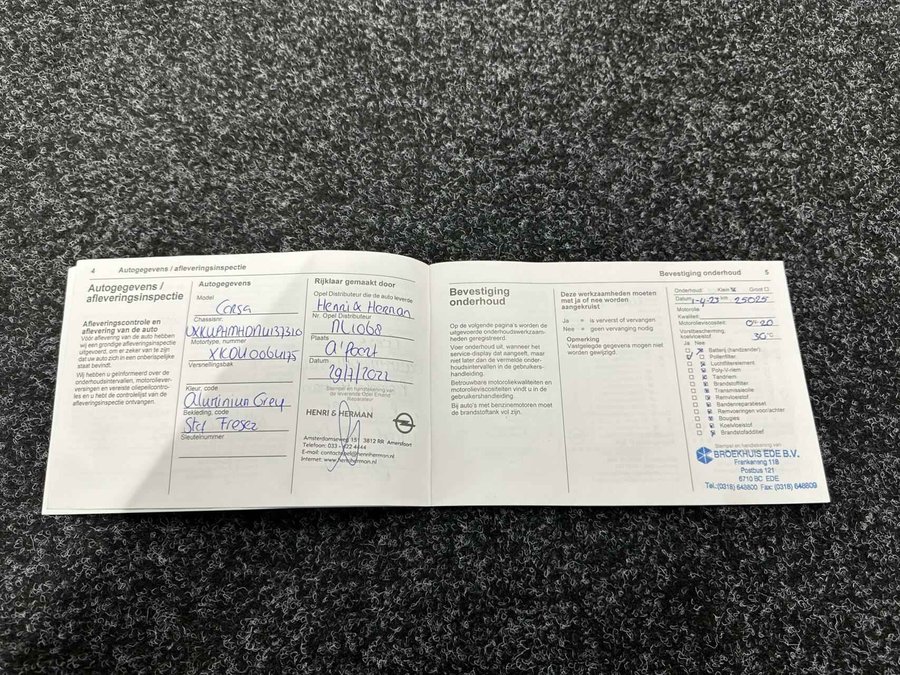 4 Autogegevens / afleveringsinspectie
Autogegevens /
afleveringsinspectie
Aflevering­controle en
aflevering van de auto
Vóór aflevering van de auto hebben
wij een grondige afleveringsinspectie
uitgevoerd, om er zeker van te zijn
dat uw auto zich in een onberispelijke
staat bevindt.
Wij hebben u geïnformeerd over de
onderhoudsintervallen, motorolie-
verversingen en vereiste oliepeilcontro-
les en u hebt de controlelijst van de
afleveringsinspectie ontvangen.
Autogegevens
Model
Corsa
Chassisnr.
Motortype, nummer
Versnellingsbak
Kleur, code
Aluminium Grey
Bekleding, code
Stof
Sleutelnummer
Rijklaar gemaakt door
Opel Distributeur die de auto leverde
Henri & Herman
Nr. Opel Distributeur
NL1068
Plaats
A'foort
Datum
Stempel en handtekening van
de leverende Opel Erkend
Reparateur
HENRI & HERMAN
Amsterdamseweg 151 3812 RR Amersfoort
Telefoon: 033 - 422 4444
Internet: www.henriherman.nl
Bevestiging onderhoud 5
Bevestiging
onderhoud
Op de volgende pagina's worden de
uitgevoerde onderhoudswerkzaam-
heden geregistreerd.
Voer onderhoud uit, wanneer het
service-display dat aangeeft, maar
niet later dan de vermelde onder-
houdsintervallen in de gebruikers-
handleiding.
Betrouwbare motoroliekwaliteiten en
motorolieviscositeiten vindt u in de
gebruikershandleiding.
Bij auto's met benzinemotoren moet
de brandstoftank vol zijn.
Deze werkzaamheden moeten
met ja of nee worden
aangekruist
Ja = is ververst of vervangen
Nee = geen vervanging nodig
Opmerking
Vastgelegde gegevens mogen niet
worden gewijzigd.
Onderhoud: Klein Groot
Datum 1-4-23 km 25025
Motorolie
Kwaliteit:
Motorolieviscositeit: 0w20
Vorstbescherming,
koelvloeistof 30°C
Ja Nee
Batterij (handzender)
Pollenfilter
Luchtfilterelement
Poly-V-riem
Tandriem
Brandstoffilter
Transmissieolie
Remvloeistof
Bandenreparatieset
Remvoeringen voor/achter
Bougies
Koelvloeistof
Brandstofadditief
Stempel en handtekening van
BROEKHUIS EDE B.V.
Frankeneng 118
Postbus 121
6710 BC EDE
Tel.:(0318) 648800 Fax: (0318) 648809